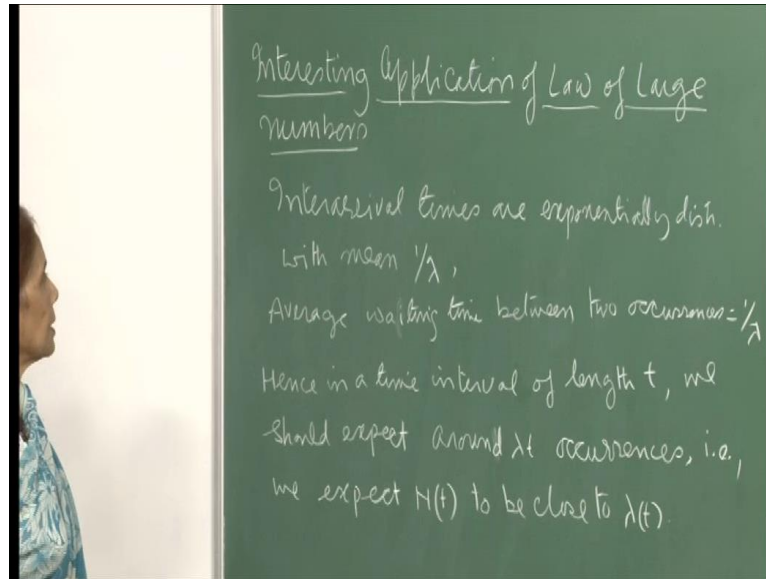 Interesting Application of Law of Large
numbers
Interarrival times are exponentially dist.
with mean 1/λ,
Average waiting time between two occurrences = 1/λ
Hence in a time interval of length t, we
should expect around λt occurrences, i.e.,
we expect N(t) to be close to λ(t).